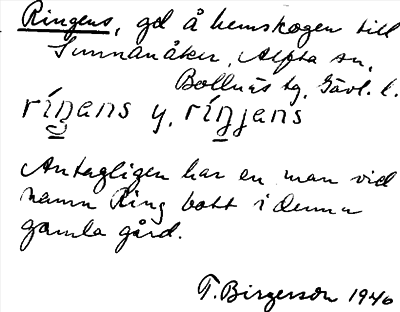 Ringens, gd å hemskogen till
Sunnanåker, Alfta sn,
Bollnäs tg. Gävl. l.
ríŋans y. ríŋjans
Antagligen har en man vid
namn Ring bott i denna
gamla gård.
T. Birgerson 1946